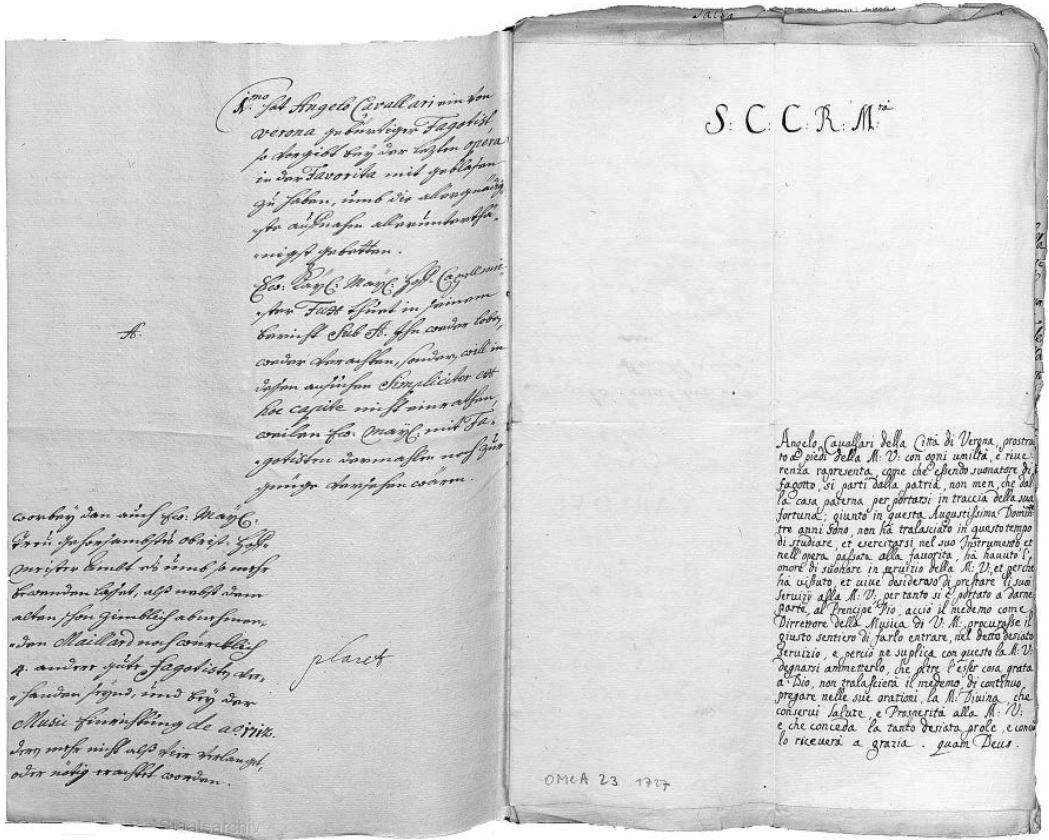 1.mo hat Angelo Cavallari ein von
verona gebürtiger Fagotist,
so vorgibt bey der lezten opera
in der Favorita mit geblasen
zu haben, umb die allergnädig-
ste aufnahm allerunterthä-
nigst gebetten.
Ew: Kayl: Mayl: Hoff-Capellmei-
ster Fux thuet in seinem
bericht Sub A. Ihn weder loben,
weder verachten, sondern will in
dessen ansuchen Simpliciter ex
hoc capite nicht einrathen,
weilen Ew: Mayl: mit Fa-
gotisten dermahlen noch zur
genüge versehen wären.
A.
worbey dan auch Ew: Mayl:
treu gehorsambstes obrist-Hoff-
meister Ambt es umb so mehr
bewenden lasset, alß nebst dem
alten schon zimblich abnehmen-
den Maillard noch würcklich
4. andere gute Fagotisten ver-
handen seynd, und bey der
Music Einrichtung de ao 1712.
deren mehr nicht alß vier verlangt,
oder nötig erachtet worden.
placet
S: C: C: R: M:tà
Angelo Cavallari della Città di Verona, prostra
to a' piedi della M: V: con ogni umiltà, e rive
renza rapresenta, come che essendo suonatore di
fagotto, si partì dalla patria, non men, che dal
la casa paterna per portarsi in traccia della sua
fortuna; giunto in questa Augustissima Domin
tre anni sono, non ha tralasciato in questo tempo
di studiare, et esercitarsi nel suo Instrumento et
nell'opera passata alla favorita, hà havuto l'
onore di suonare in servizio della M: V: et perche
hà vissuto, et vive desideroso di prestare li suoi
servizij alla M: V: per tanto si è portato a darne
parte, al Principe Pio, acciò il medemo come
Dirrettore della Musica di V: M: procurasse il
giusto sentiero di farlo entrare, nel detto desiato
servizio, e perciò ne suplica con questo la M: V:
degnarsi ammetterlo, che oltre l'esser cosa grata
a Dio, non tralascierà il medemo di continuo
pregare nelle sue orationi, la M: Divina che
conservi salute, e Prosperità alla M: V:
e che conceda la tanto desiata prole, e
lo riceverà a grazia. quam Deus.
OMeA 23 1727
Staatsarchiv